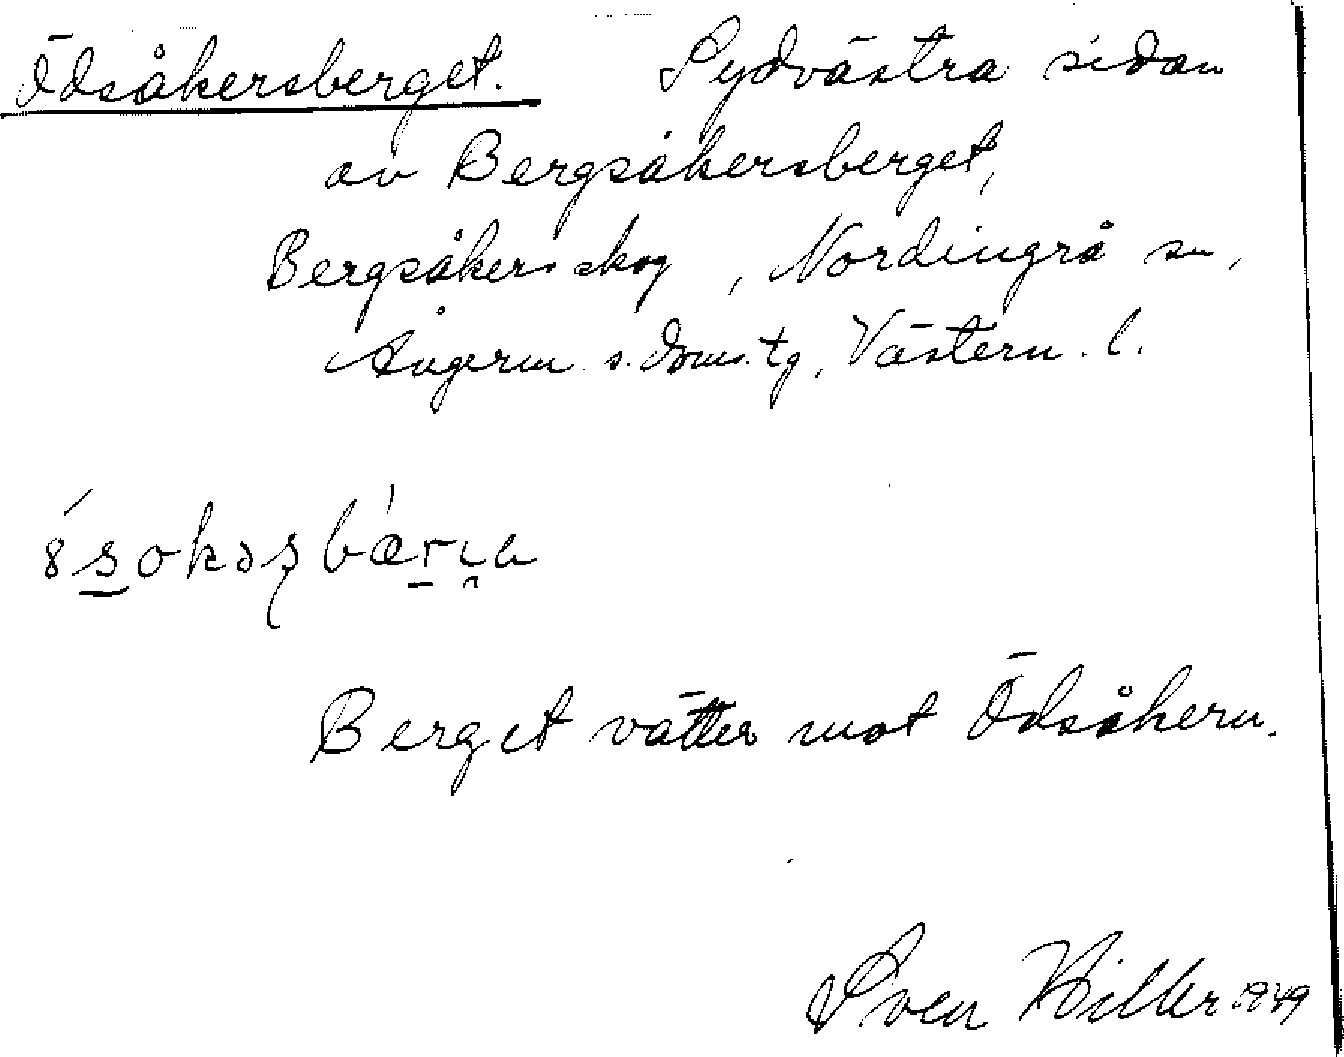 Ödsåkersberget. Sydvästra sidan
av Bergsåkersberget,
Bergsåkers skog, Nordingrå sn,
Ångerm. s. doms. tg, Västern. l.
Berget vätter mot Ödsåkern.
Sven 1949